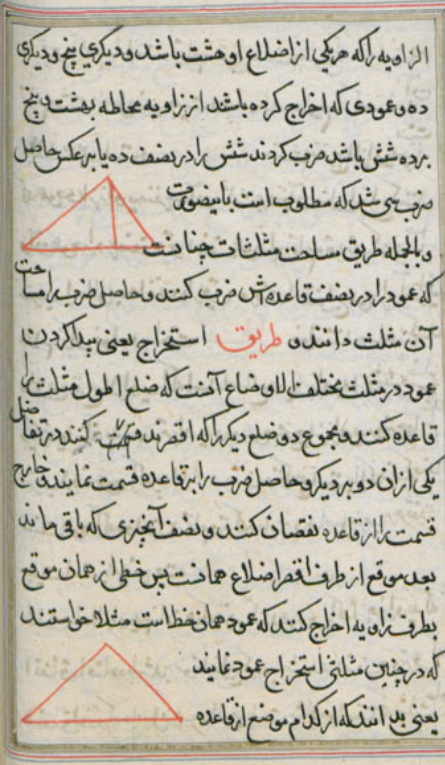 الزاویه را که هر یکی از اضلاع او هشت باشد و دیکری پنج و دیکری
ده و عمودی که اخراج کرده باشند از زاویه محاطه بهشت و پنج
برده شش باشد ضرب کردند شش را در نصف ده یا بر عکس حاصل
ضرب سی شد که مطلوب است باینصورت
و بالجمله طریق مساحت مثلثات چنانست
که عمود را در نصف قاعده اش ضرب کنند و حاصل ضرب را مساحت
آن مثلث دانند و طریق استخراج یعنی پیدا کردن
عمود در مثلث مختلف الاضلاع آنست که ضلع اطول مثلث را
قاعده کنند و مجموع دو ضلع دیکر را که اقصرند ضرب کنند در تفاضل
یکی از ان دو بر دیکر و حاصل ضرب را بر قاعده قسمت نمایند و خارج
قسمت را از قاعده نقصان کنند و نصف آنچیزی که باقی ماند
بعد موقع از طرف اقصر اضلاع همانست پس خطی از همان موقع
بطرف زاویه اخراج کنند که عمود همان خط است مثلا خواستند
که در چنین مثلثی استخراج عمود نمایند
یعنی بدانند که از کدام موضع از قاعده